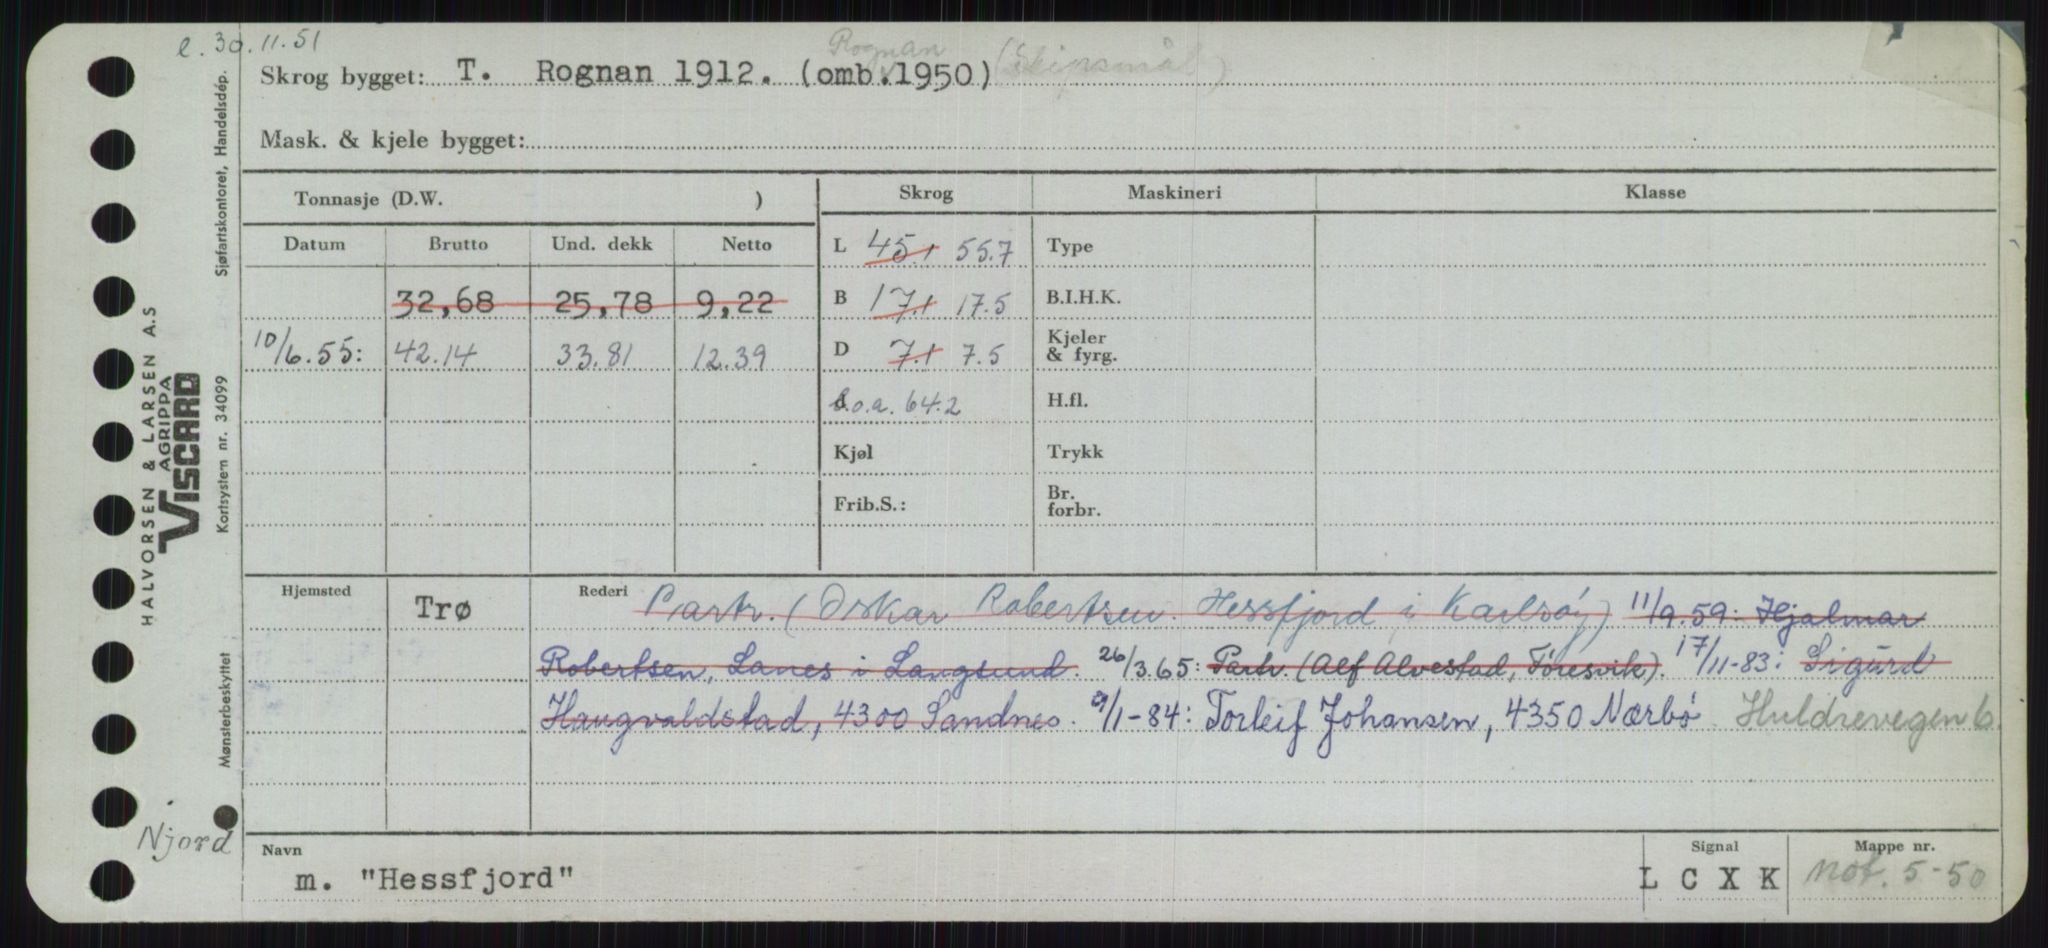 e. 30.11.51
Rognan (Skipsmål)
Skrog bygget: T. Rognan 1912. (omb.1950)
Mask. & kjele bygget:
Tonnasje (D.W. )
Skrog
Maskineri
Klasse
Datum Brutto Und. dekk Netto
L 45.1 55.7
Type
32,68 25,78 9,22
B 17.1 17.5
B.I.H.K.
10/6.55: 42.14 33.81 12.39
D 7.1 7.5
Kjeler
& fyrg.
l.o.a. 64.2
H.fl.
Kjøl
Trykk
Frib.S.:
Br.
forbr.
Hjemsted Trø
Rederi Partr. (Oskar Robertsen. Hessfjord i Karlsøy) 11/9.59: Hjalmar
Robertsen, Lanes i Langsund. 26/3.65: Partr. (Alf Alvestad, Føresvik). 17/11-83: Sigurd
Haugvaldstad, 4300 Sandnes. 9/1-84: Torleif Johansen, 4350 Nærbø Huldrevegen 6.
Njord
Navn
m. "Hessfjord"
Signal
L C X K
Mappe nr.
not. 5-50
Sjøfartskontoret, Handelsdép.
HALVORSEN & LARSEN A.S
AGRIPPA
VISCARD
Kortsystem nr. 34099
Mønsterbeskyttet